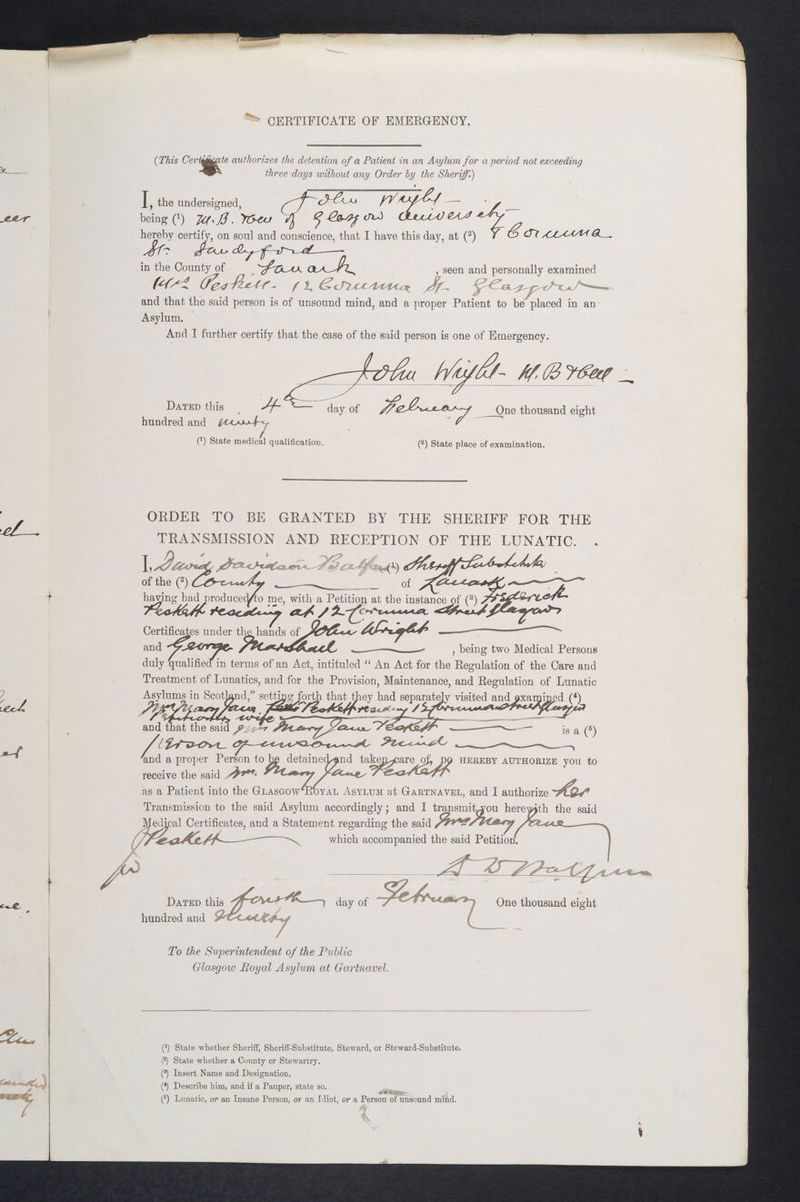 CERTIFICATE OF EMERGENCY.
(This Certificate authorizes the detention of a Patient in an Asylum for a period not exceeding
three days without any Order by the Sheriff.)
I, the undersigned, John Wright
being (1) M.B. of Glasgow University
hereby certify, on soul and conscience, that I have this day, at (2) Corunna
St. Sandyford
in the County of Lanark, seen and personally examined
Mrs Peskett. 12 Corunna St. Glasgow
and that the said person is of unsound mind, and a proper Patient to be placed in an
Asylum.
And I further certify that the case of the said person is one of Emergency.
John Wright - M.B
DATED this 4th day of February One thousand eight
hundred and ninety
(1) State medical qualification. (2) State place of examination.
ORDER TO BE GRANTED BY THE SHERIFF FOR THE
TRANSMISSION AND RECEPTION OF THE LUNATIC.
I, David Davidson Balfour (1) Sheriff Substitute
of the (2) County of Lanark
having had produced to me, with a Petition at the instance of (3) Frederick
Peskett residing at 12 Corunna Street Glasgow
Certificates under the hands of John Wright
and George Marshall, being two Medical Persons
duly qualified in terms of an Act, intituled " An Act for the Regulation of the Care and
Treatment of Lunatics, and for the Provision, Maintenance, and Regulation of Lunatic
Asylums in Scotland," setting forth that they had separately visited and examined (4)
Mrs Mary Jane Peskett residing 12 Corunna Street Glasgow
Petitioners wife
and that the said Mrs Mary Jane Peskett is a (5)
Person of unsound mind
and a proper Person to be detained and taken care of, DO HEREBY AUTHORIZE you to
receive the said Mrs. Mary Jane Peskett
as a Patient into the GLASGOW ROYAL ASYLUM at GARTNAVEL, and I authorize her
Transmission to the said Asylum accordingly; and I transmit you herewith the said
Medical Certificates, and a Statement regarding the said Mrs Mary Jane
Peskett which accompanied the said Petition.
D D Balfour
DATED this fourth day of February One thousand eight
hundred and Ninety
To the Superintendent of the Public
Glasgow Royal Asylum at Gartnavel.
(1) State whether Sheriff, Sheriff-Substitute, Steward, or Steward-Substitute.
(2) State whether a County or Stewartry.
(3) Insert Name and Designation.
(4) Describe him, and if a Pauper, state so.
(5) Lunatic, or an Insane Person, or an Idiot, or a Person of unsound mind.